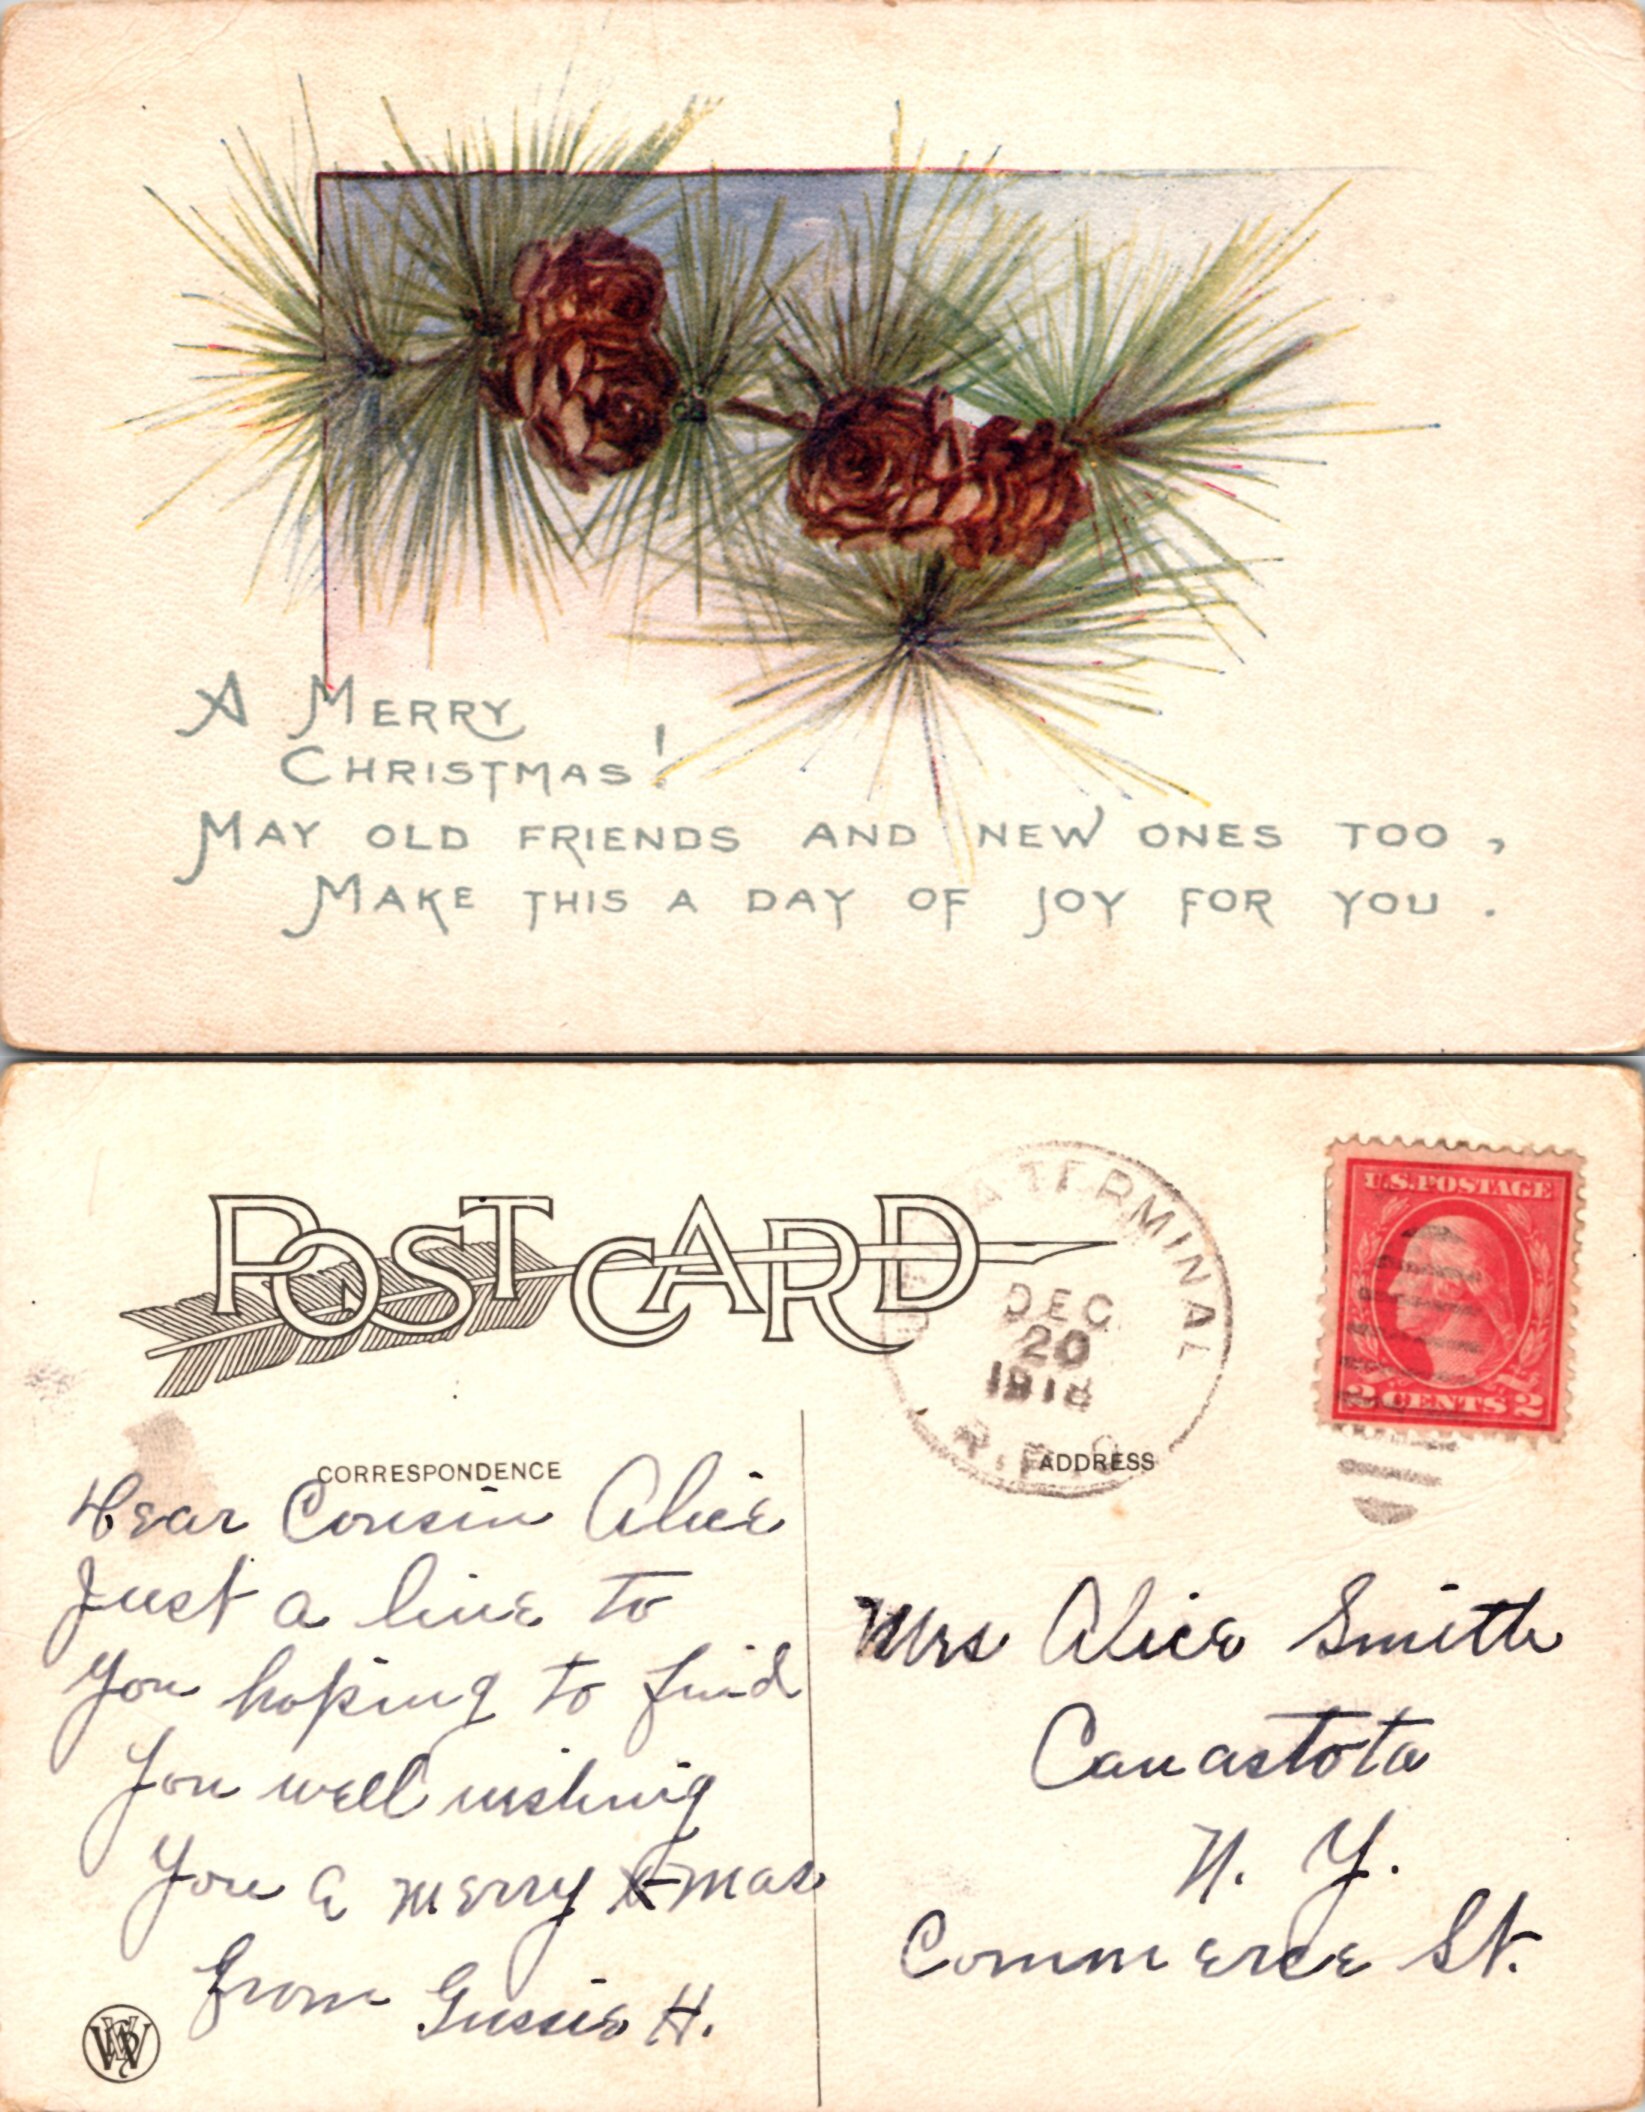 A MERRY
CHRISTMAS!
MAY OLD FRIENDS AND NEW ONES TOO,
MAKE THIS A DAY OF JOY FOR YOU.
POST CARD
TERMINAL
DEC
20
1918
R.P.O.
U.S. POSTAGE
2 CENTS 2
CORRESPONDENCE
ADDRESS
Dear Cousin Alice
Just a line to
you hoping to find
you well wishing
you a merry X-mas
from Gussie H.
Mrs Alice Smith
Canastota
N. Y.
Commerce St.